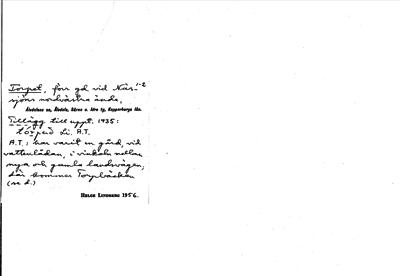 Torpet, förr gd vid Näs-¹⁻²
sjöns nordvästra ända.
Älvdalens sn, Älvdals, Särna o. Idre tg, Kopparbergs län.
Tillägg till uppt. 1935:
Li. A.T.
A.T.: har varit en gård, vid
vattenlådan, i vinkeln mellan
nya och gamla landsvägen,
där kommer Torpbäcken
(se d.)
HELGE LINDBERG 1956.